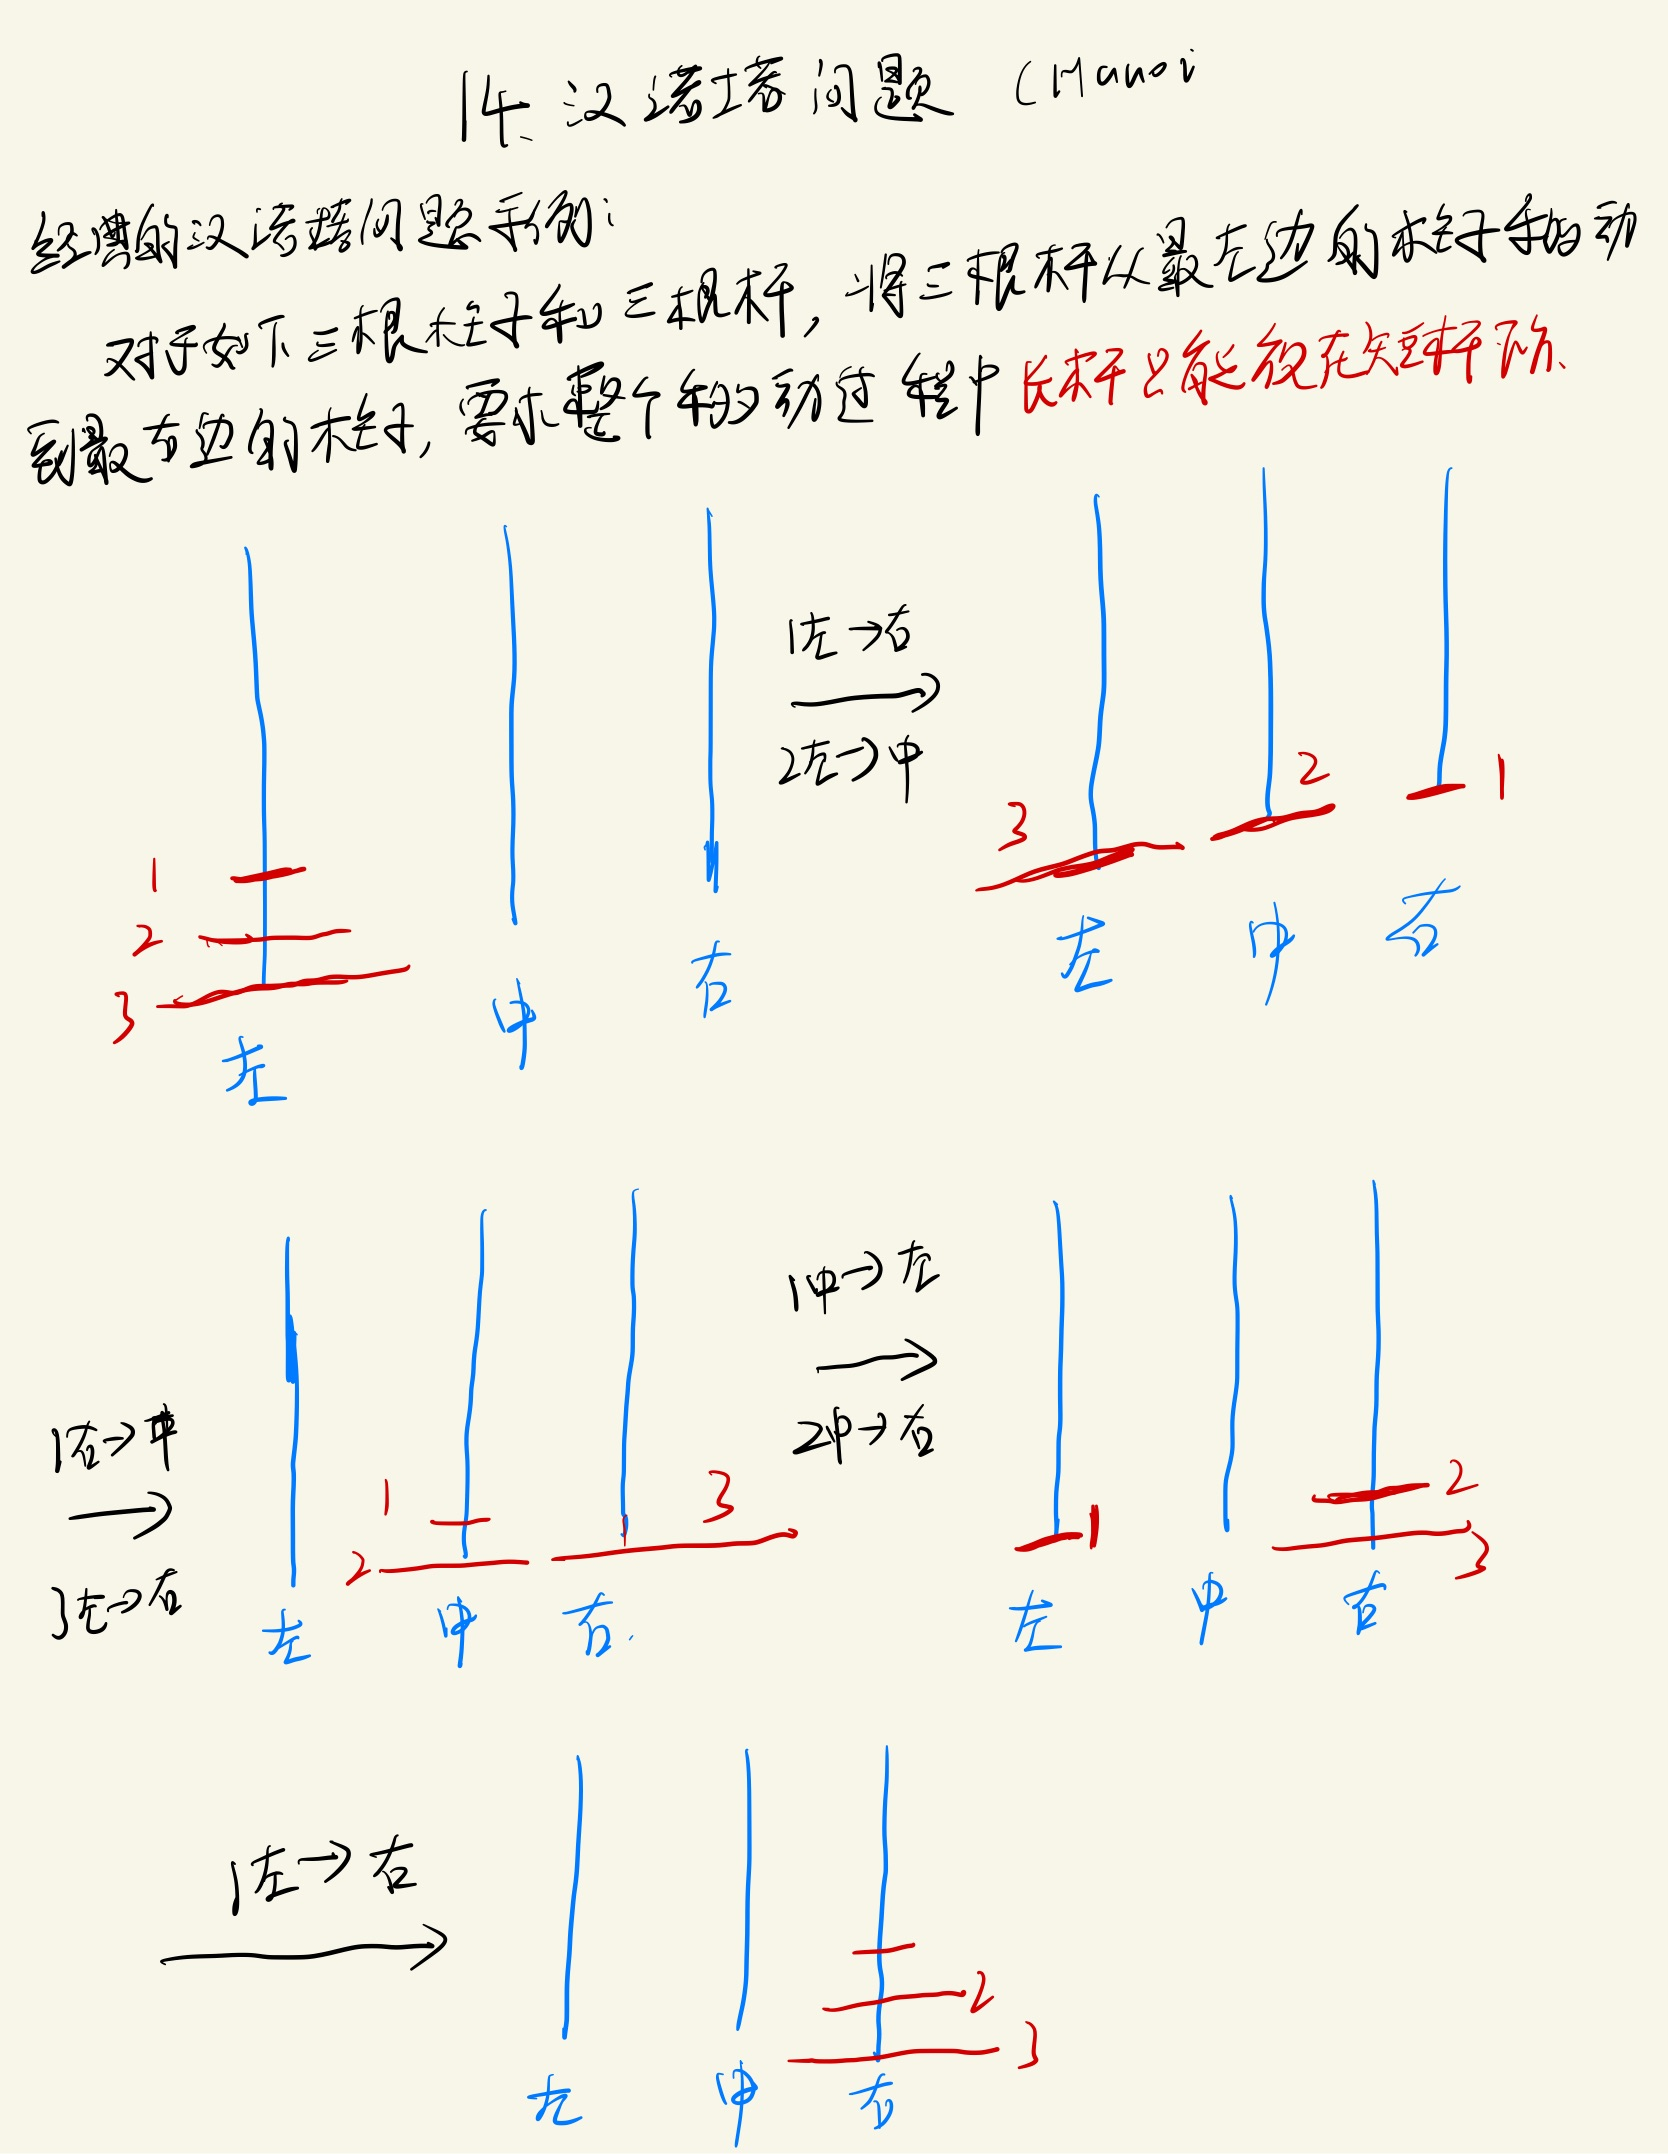 14、汉诺塔问题 (Hanoi
经典的汉诺塔问题示例:
对于如下三根柱子和三根杆, 将三根杆从最左边的木柱子移动
到最右边的木柱子, 要求整个移动过程中长杆只能放在短杆下,
1左→右
2左→中
1
2
3
左 中 右
3 2 1
左 中 右
1右→中
3左→右
1 2 3
左 中 右.
1中→左
2中→右
1 2 3
左 中 右
1左→右
2
3
左 中 右